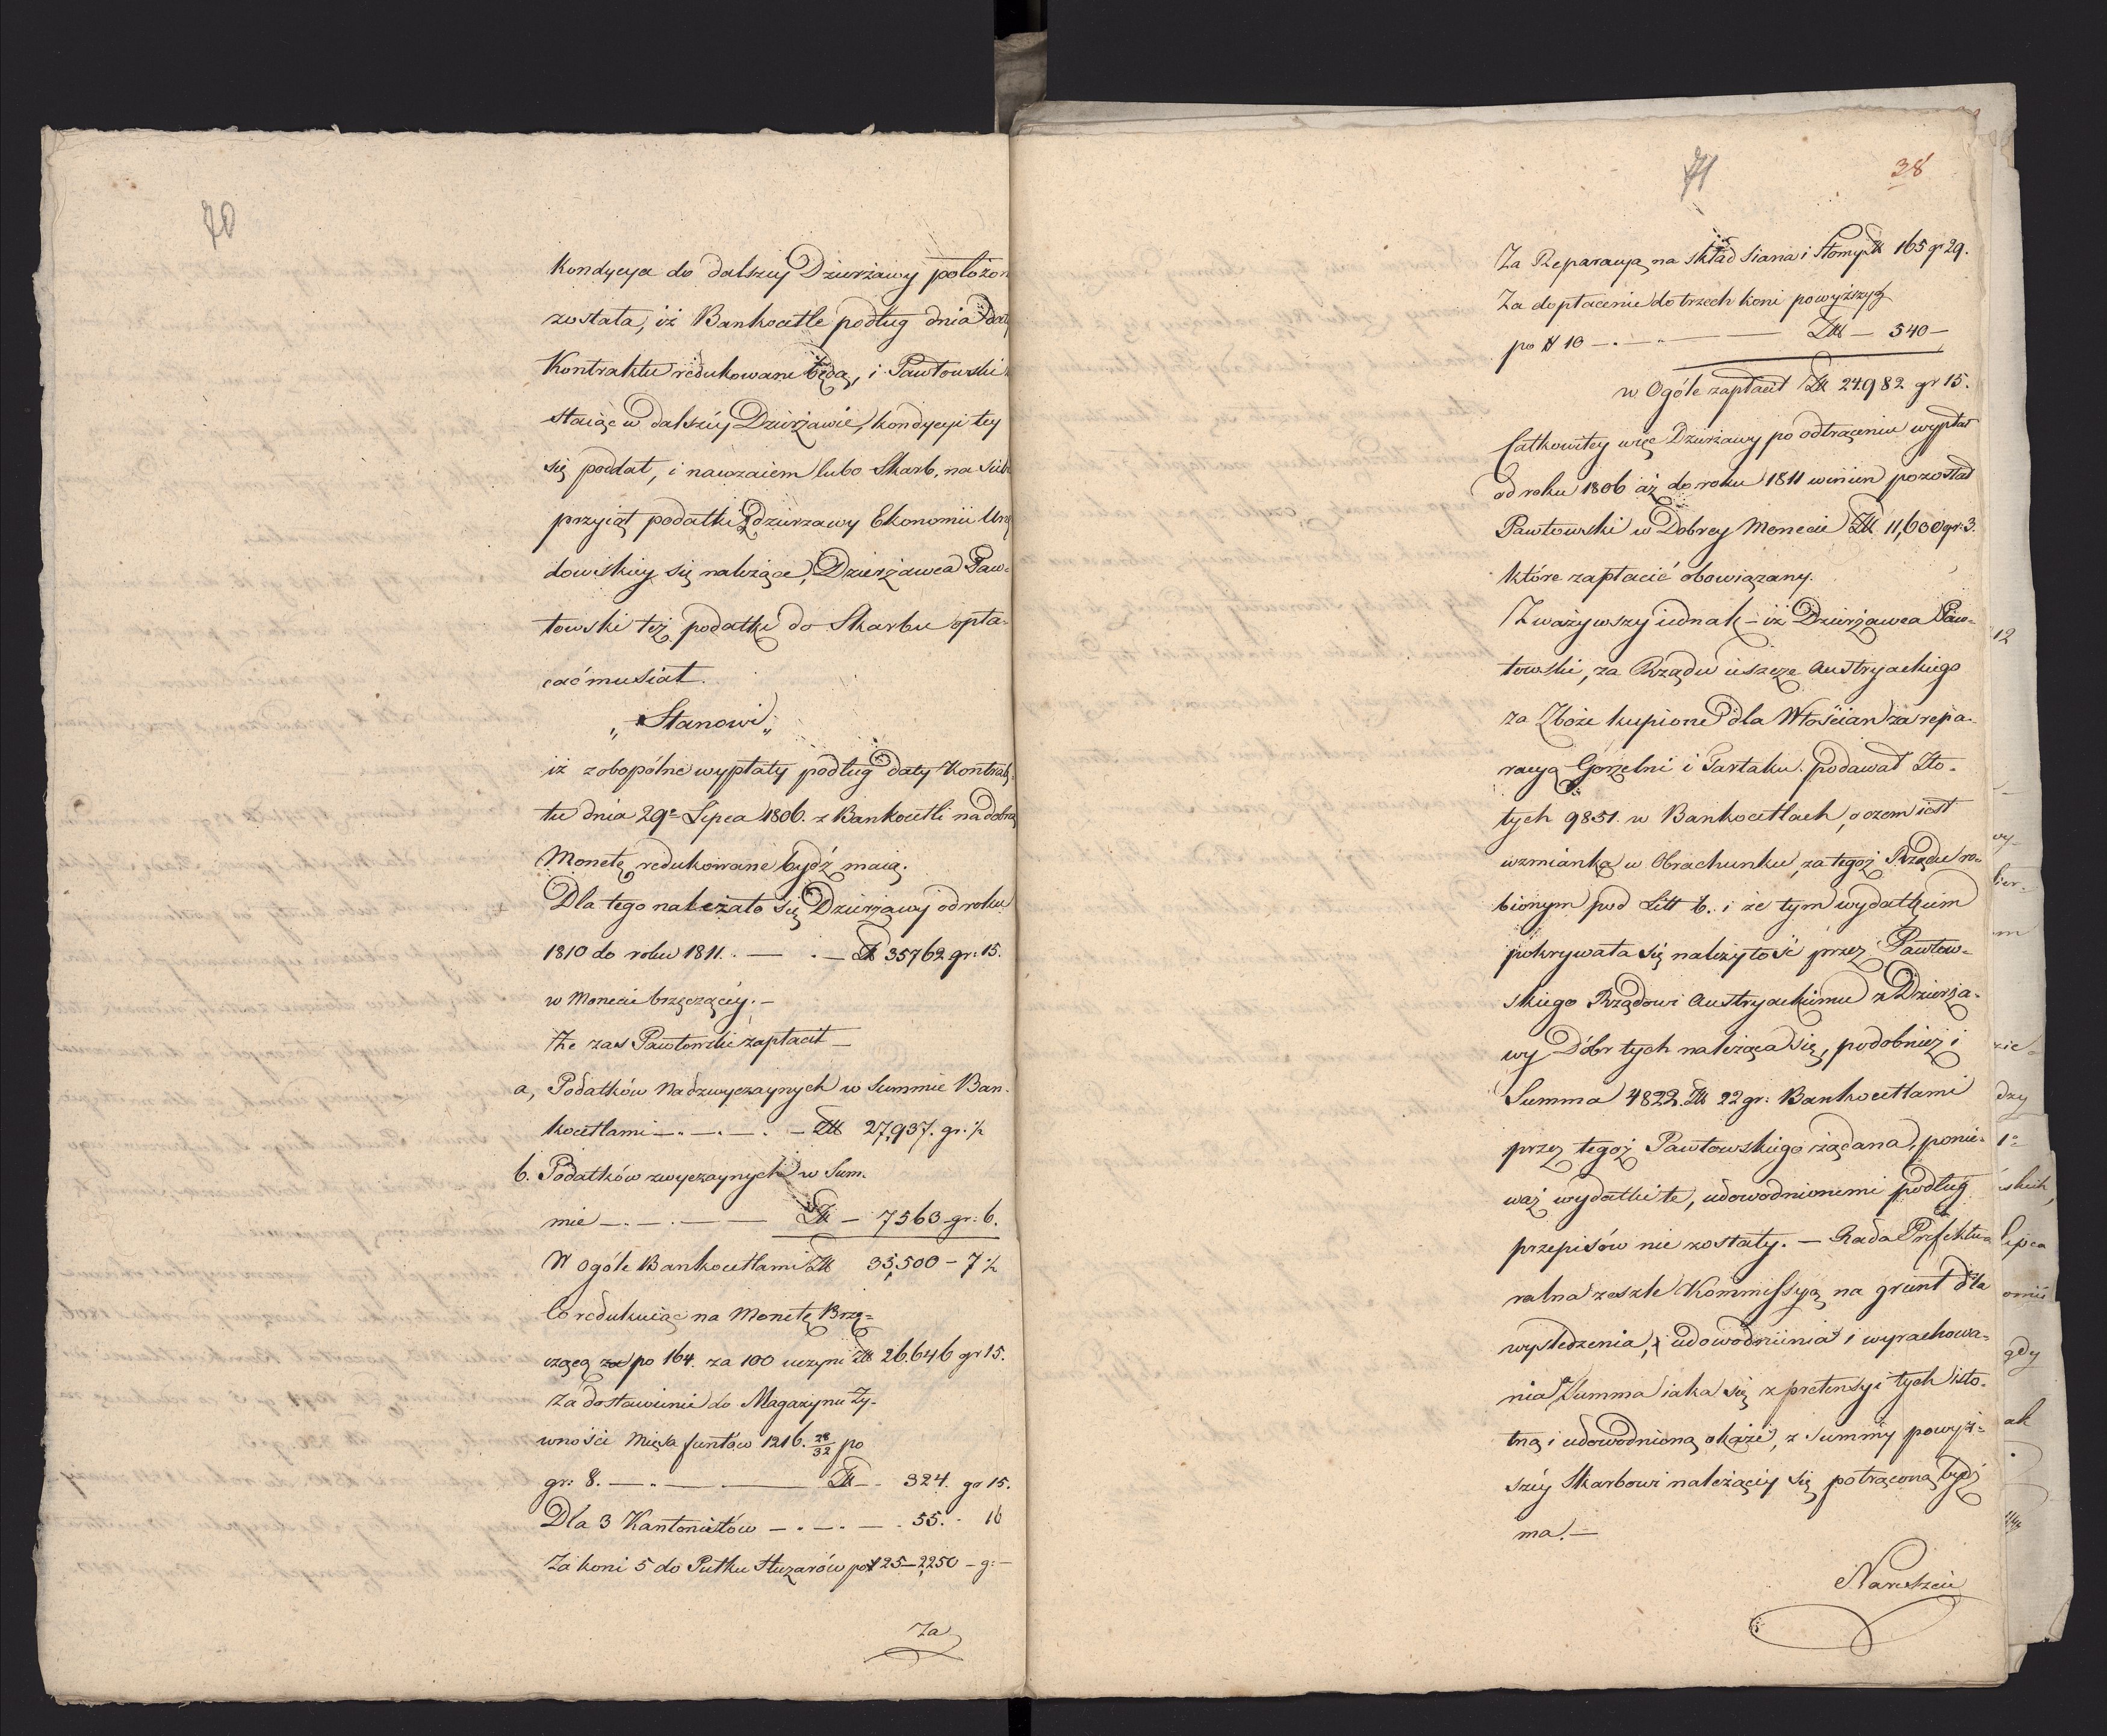 70
Kondycya do dalszey Dzierżawy położon
została, iż Bankocetle podług dnia daty
Kontraktu redukowane będą, i Pawłowski
staiąc w dalszéy Dzierżawie, kondycyi tey
się poddał, i nawzaiem lubo Skarb, na siebie
przyiął podatki z dzierzawy Ekonomii Un
dowskiey się należące, Dzierżawca Paw=
łowski też podatki do Skarbu opła=
cać musiał.
„Stanowi„
iż zobopólne wypłaty podług daty Kontrak=
tu dnia 29º Lipca 1806. z Bankocetli na dobrą
Monetę redukowane bydź maią.
Dla tego należało się Dzierżawy od roku
1810 do roku 1811. . — . — Zł 35762 gr: 15.
w Monecie brzęczącéy. —
Że zas Pawłowski zapłacił —
a, Podatków Nadzwyczaynych w Summie Ban=
kocetlami — . — . — . — Zł 27,937. gr. ½
b. Podatków zwyczaynych w Sum=
mie — . — . — — Zł — 7563 gr: 6.
W ogóle Bankocetlami Zł 35,500 — 7 ½
Co redukuiąc na Monetę Brzę=
czącą po 164. za 100 uczyni Zł 26.646 gr 15.
Za dostawienie do Magazynu Ży=
wności Mięsa funtów 1216. 28/32 po
gr: 8. — . — — Zł — 324. gr 15.
Dla 3 Kantonistów — . — . — . 55. . 16
Za koni 5 do Pułku Huzarów po # 25 — 2,250 — g: —
Za
71
38
Za Reparacyą na skład Siana i Słomy Zł 165 gr 29.
Za dopłacenie do trzech koni powyższych
po # 10 — . — . — Zł — 540 —
w Ogóle zapłacił Zł 24.982 gr 15.
Całkowitey więc Dzierżawy po odtrąceniu wypłat
od roku 1806 aż do roku 1811 winien pozostał
Pawłowski w Dobrey Monecie Zł 11,600 gr: 3.
które zapłacić obowiązany.
Zważywszy iednak — iż Dzierżawca Paw=
łowski, za Rządu ieszcze Austryackiego
za Zboże kupione dla Włościan za repa=
racyą Gorzelni i Tartaku. podawał Zło=
tych 9851. w Bankocetlach, o czem iest
wzmianka w Obrachunku, za tegoż Rządu ro=
bionym pod Litt b. i że tym wydatkiem
pokrywała się należytość przez Pawłow=
skiego Rządowi Austryackiemu z Dzierża=
wy Dóbr tych należąca się, podobnież i
Summa 4822. Zł 22 gr: Bankocetlami
przez tegoż Pawłowskiego żądana, ponie=
waż wydatki te, udowodnionemi podług
przepisów nie zostały. — Rada Prefektu=
ralna zeszle Kommissyą na grunt dla
wysledzenia, udowodnienia i wyrachowa=
nia Summa iaka się z pretensyi tych isto=
tną i udowodnioną okaże, z Summy powyż=
széy Skarbowi należącéy się potrąconą bydź
ma. —
Nareszcie